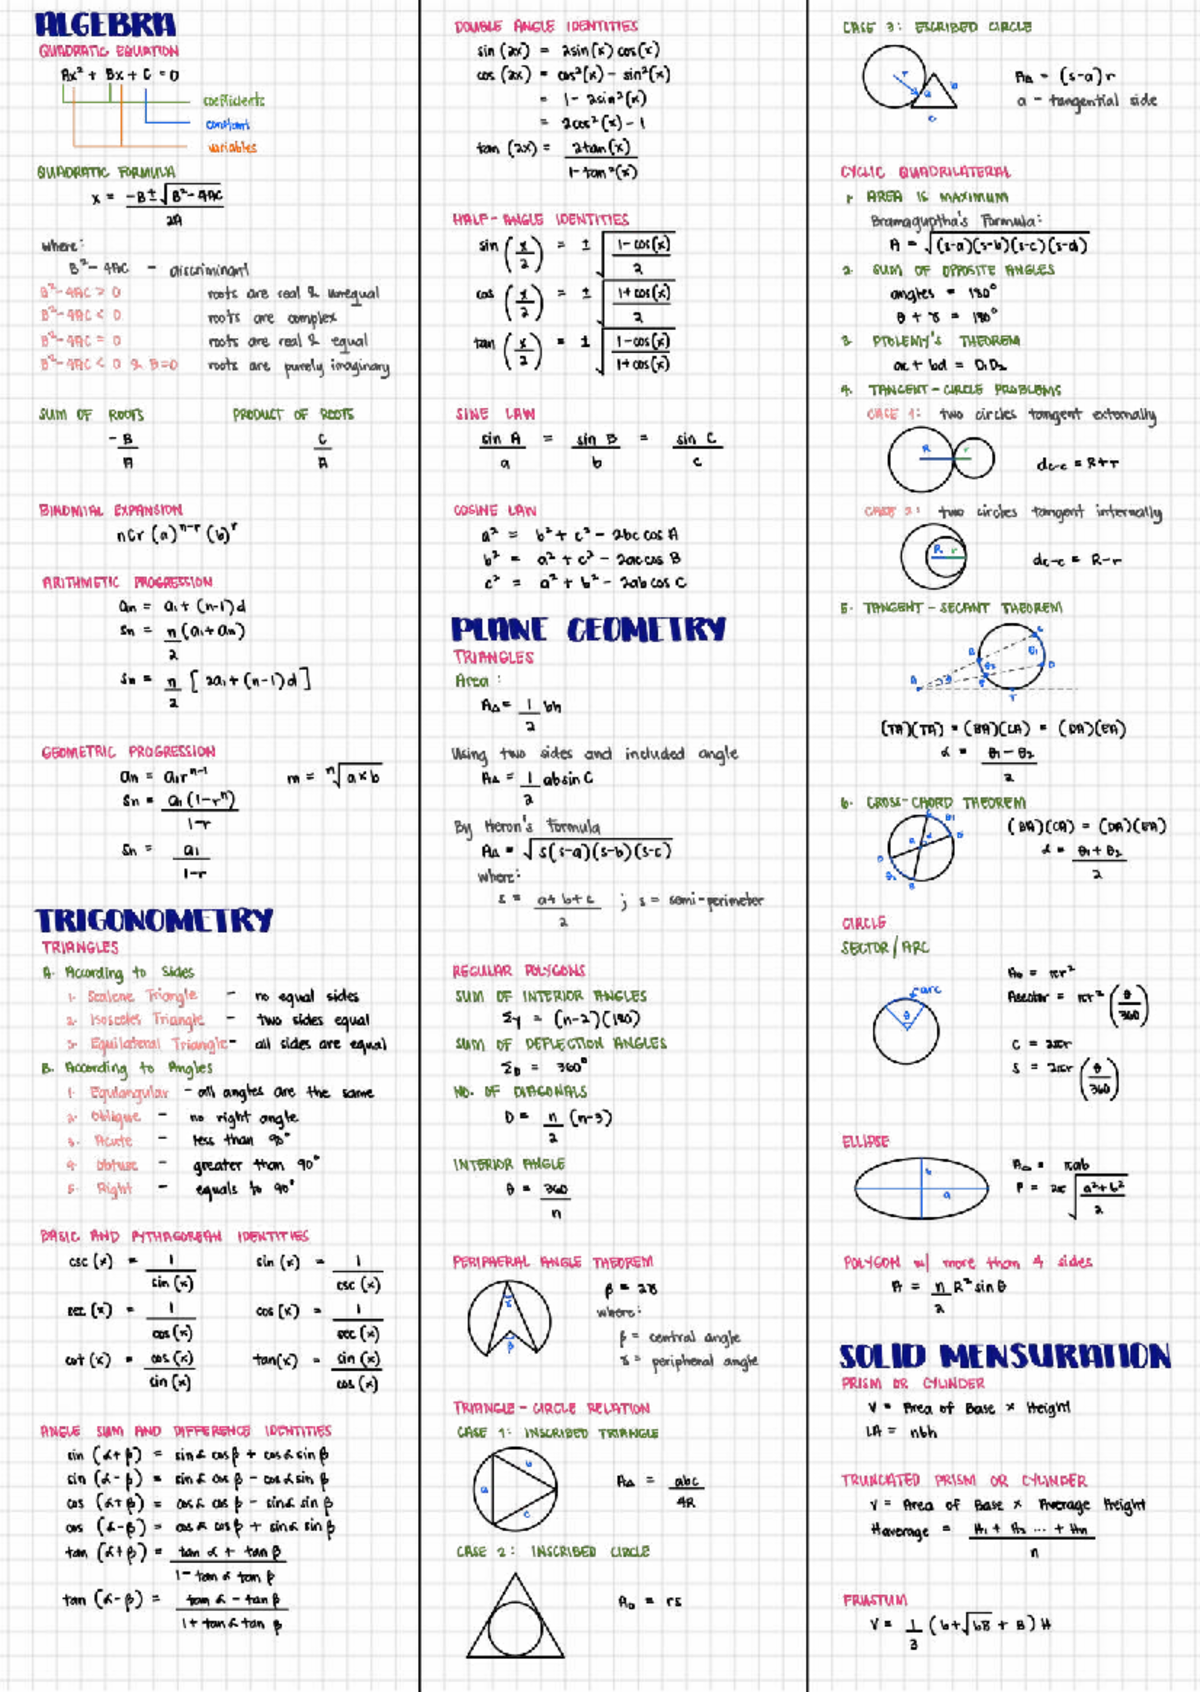 ALGEBRA
QUADRATIC EQUATION
Ax² + Bx + C = 0
coefficients
constant
variables
QUADRATIC FORMULA
x = (-B ± √(B² - 4AC)) / 2A
where:
B² - 4AC - discriminant
B² - 4AC > 0 roots are real & unequal
B² - 4AC < 0 roots are complex
B² - 4AC = 0 roots are real & equal
B² - 4AC < 0 & B=0 roots are purely imaginary
SUM OF ROOTS PRODUCT OF ROOTS
-B/A C/A
BINOMIAL EXPANSION
nCr (a)ⁿ⁻ʳ (b)ʳ
ARITHMETIC PROGRESSION
an = a₁ + (n-1)d
Sn = n/2 (a₁ + an)
Sn = n/2 [2a₁ + (n-1)d]
GEOMETRIC PROGRESSION
an = a₁rⁿ⁻¹ m = ⁿ√(a×b)
Sn = a₁(1-rⁿ) / 1-r
Sn = a₁ / 1-r
TRIGONOMETRY
TRIANGLES
A. According to Sides
1. Scalene Triangle - no equal sides
2. Isosceles Triangle - two sides equal
3. Equilateral Triangle - all sides are equal
B. According to Angles
1. Equiangular - all angles are the same
2. Oblique - no right angle
3. Acute - less than 90°
4. Obtuse - greater than 90°
5. Right - equals to 90°
BASIC AND PYTHAGOREAN IDENTITIES
csc (x) = 1 / sin (x) sin (x) = 1 / csc (x)
sec (x) = 1 / cos (x) cos (x) = 1 / sec (x)
cot (x) = cos (x) / sin (x) tan(x) = sin (x) / cos (x)
ANGLE SUM AND DIFFERENCE IDENTITIES
sin (α+β) = sinα cosβ + cosα sinβ
sin (α-β) = sinα cosβ - cosα sinβ
cos (α+β) = cosα cosβ - sinα sinβ
cos (α-β) = cosα cosβ + sinα sinβ
tan (α+β) = tan α + tan β / 1 - tan α tan β
tan (α-β) = tan α - tan β / 1 + tan α tan β
DOUBLE ANGLE IDENTITIES
sin (2x) = 2sin(x) cos(x)
cos (2x) = cos²(x) - sin²(x)
= 1 - 2sin²(x)
= 2cos²(x) - 1
tan (2x) = 2tan(x) / 1-tan²(x)
HALF-ANGLE IDENTITIES
sin (x/2) = ± √(1-cos(x) / 2)
cos (x/2) = ± √(1+cos(x) / 2)
tan (x/2) = ± √(1-cos(x) / 1+cos(x))
SINE LAW
sin A / a = sin B / b = sin C / c
COSINE LAW
a² = b² + c² - 2bc cos A
b² = a² + c² - 2ac cos B
c² = a² + b² - 2ab cos C
PLANE GEOMETRY
TRIANGLES
Area:
A△ = 1/2 bh
Using two sides and included angle
A△ = 1/2 absin C
By Heron's Formula
A△ = √(s(s-a)(s-b)(s-c))
where:
s = a+b+c / 2 ; s = semi-perimeter
REGULAR POLYGONS
SUM OF INTERIOR ANGLES
Σγ = (n-2)(180)
SUM OF DEFLECTION ANGLES
ΣD = 360°
NO. OF DIAGONALS
D = n/2 (n-3)
INTERIOR ANGLE
θ = 360 / n
PERIPHERAL ANGLE THEOREM
β = 2γ
where:
β = central angle
γ = peripheral angle
TRIANGLE-CIRCLE RELATION
CASE 1: INSCRIBED TRIANGLE
a b c
A△ = abc / 4R
CASE 2: INSCRIBED CIRCLE
A△ = rs
CASE 3: ESCRIBED CIRCLE
r a b c
A△ = (s-a)r
a - tangential side
CYCLIC QUADRILATERAL
1. AREA IS MAXIMUM
Bramaguptha's Formula:
A = √((s-a)(s-b)(s-c)(s-d))
2. SUM OF OPPOSITE ANGLES
angles = 180°
θ + γ = 180°
3. PTOLEMY'S THEOREM
ac + bd = D₁D₂
4. TANGENT-CIRCLE PROBLEMS
CASE 1: two circles tangent externally
R r
dc-c = R+r
CASE 2: two circles tangent internally
R r
dc-c = R-r
5. TANGENT-SECANT THEOREM
(TA)(TA) = (BA)(CA) = (DA)(EA)
α = θ₁ - θ₂ / 2
6. CROSS-CHORD THEOREM
(BA)(CA) = (DA)(EA)
α = θ₁ + θ₂ / 2
CIRCLE
SECTOR/ARC
arc
θ
Ao = πr²
Asector = πr² (θ/360)
C = 2πr
S = 2πr (θ/360)
ELLIPSE
b
a
Ao = πab
P = 2π √(a²+b² / 2)
POLYGON w/ more than 4 sides
A = n/2 R² sin θ
SOLID MENSURATION
PRISM OR CYLINDER
V = Area of Base × Height
LA = nbh
TRUNCATED PRISM OR CYLINDER
V = Area of Base × Average Height
Haverage = H₁ + H₂ ... + Hn / n
FRUSTUM
V = 1/3 (b+√bB + B) H